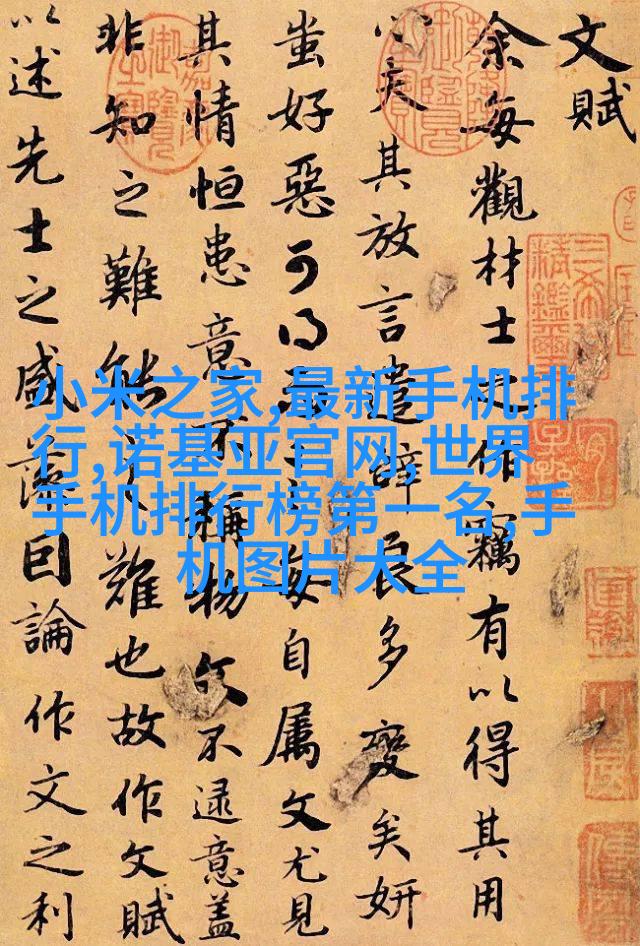 文賦
余每觀材士之作竊有以得其用
心夫其放言遣辭良多變矣妍
蚩好惡可得而言每自属文尤見
其情恒患意不稱物文不逮意蓋
非知之難能之難也故作文賦
以述先士之盛藻因論作文之利
小米之家,最新手机排
行,诺基亚官网,世界
手机排行榜第一名,手
机图片大全